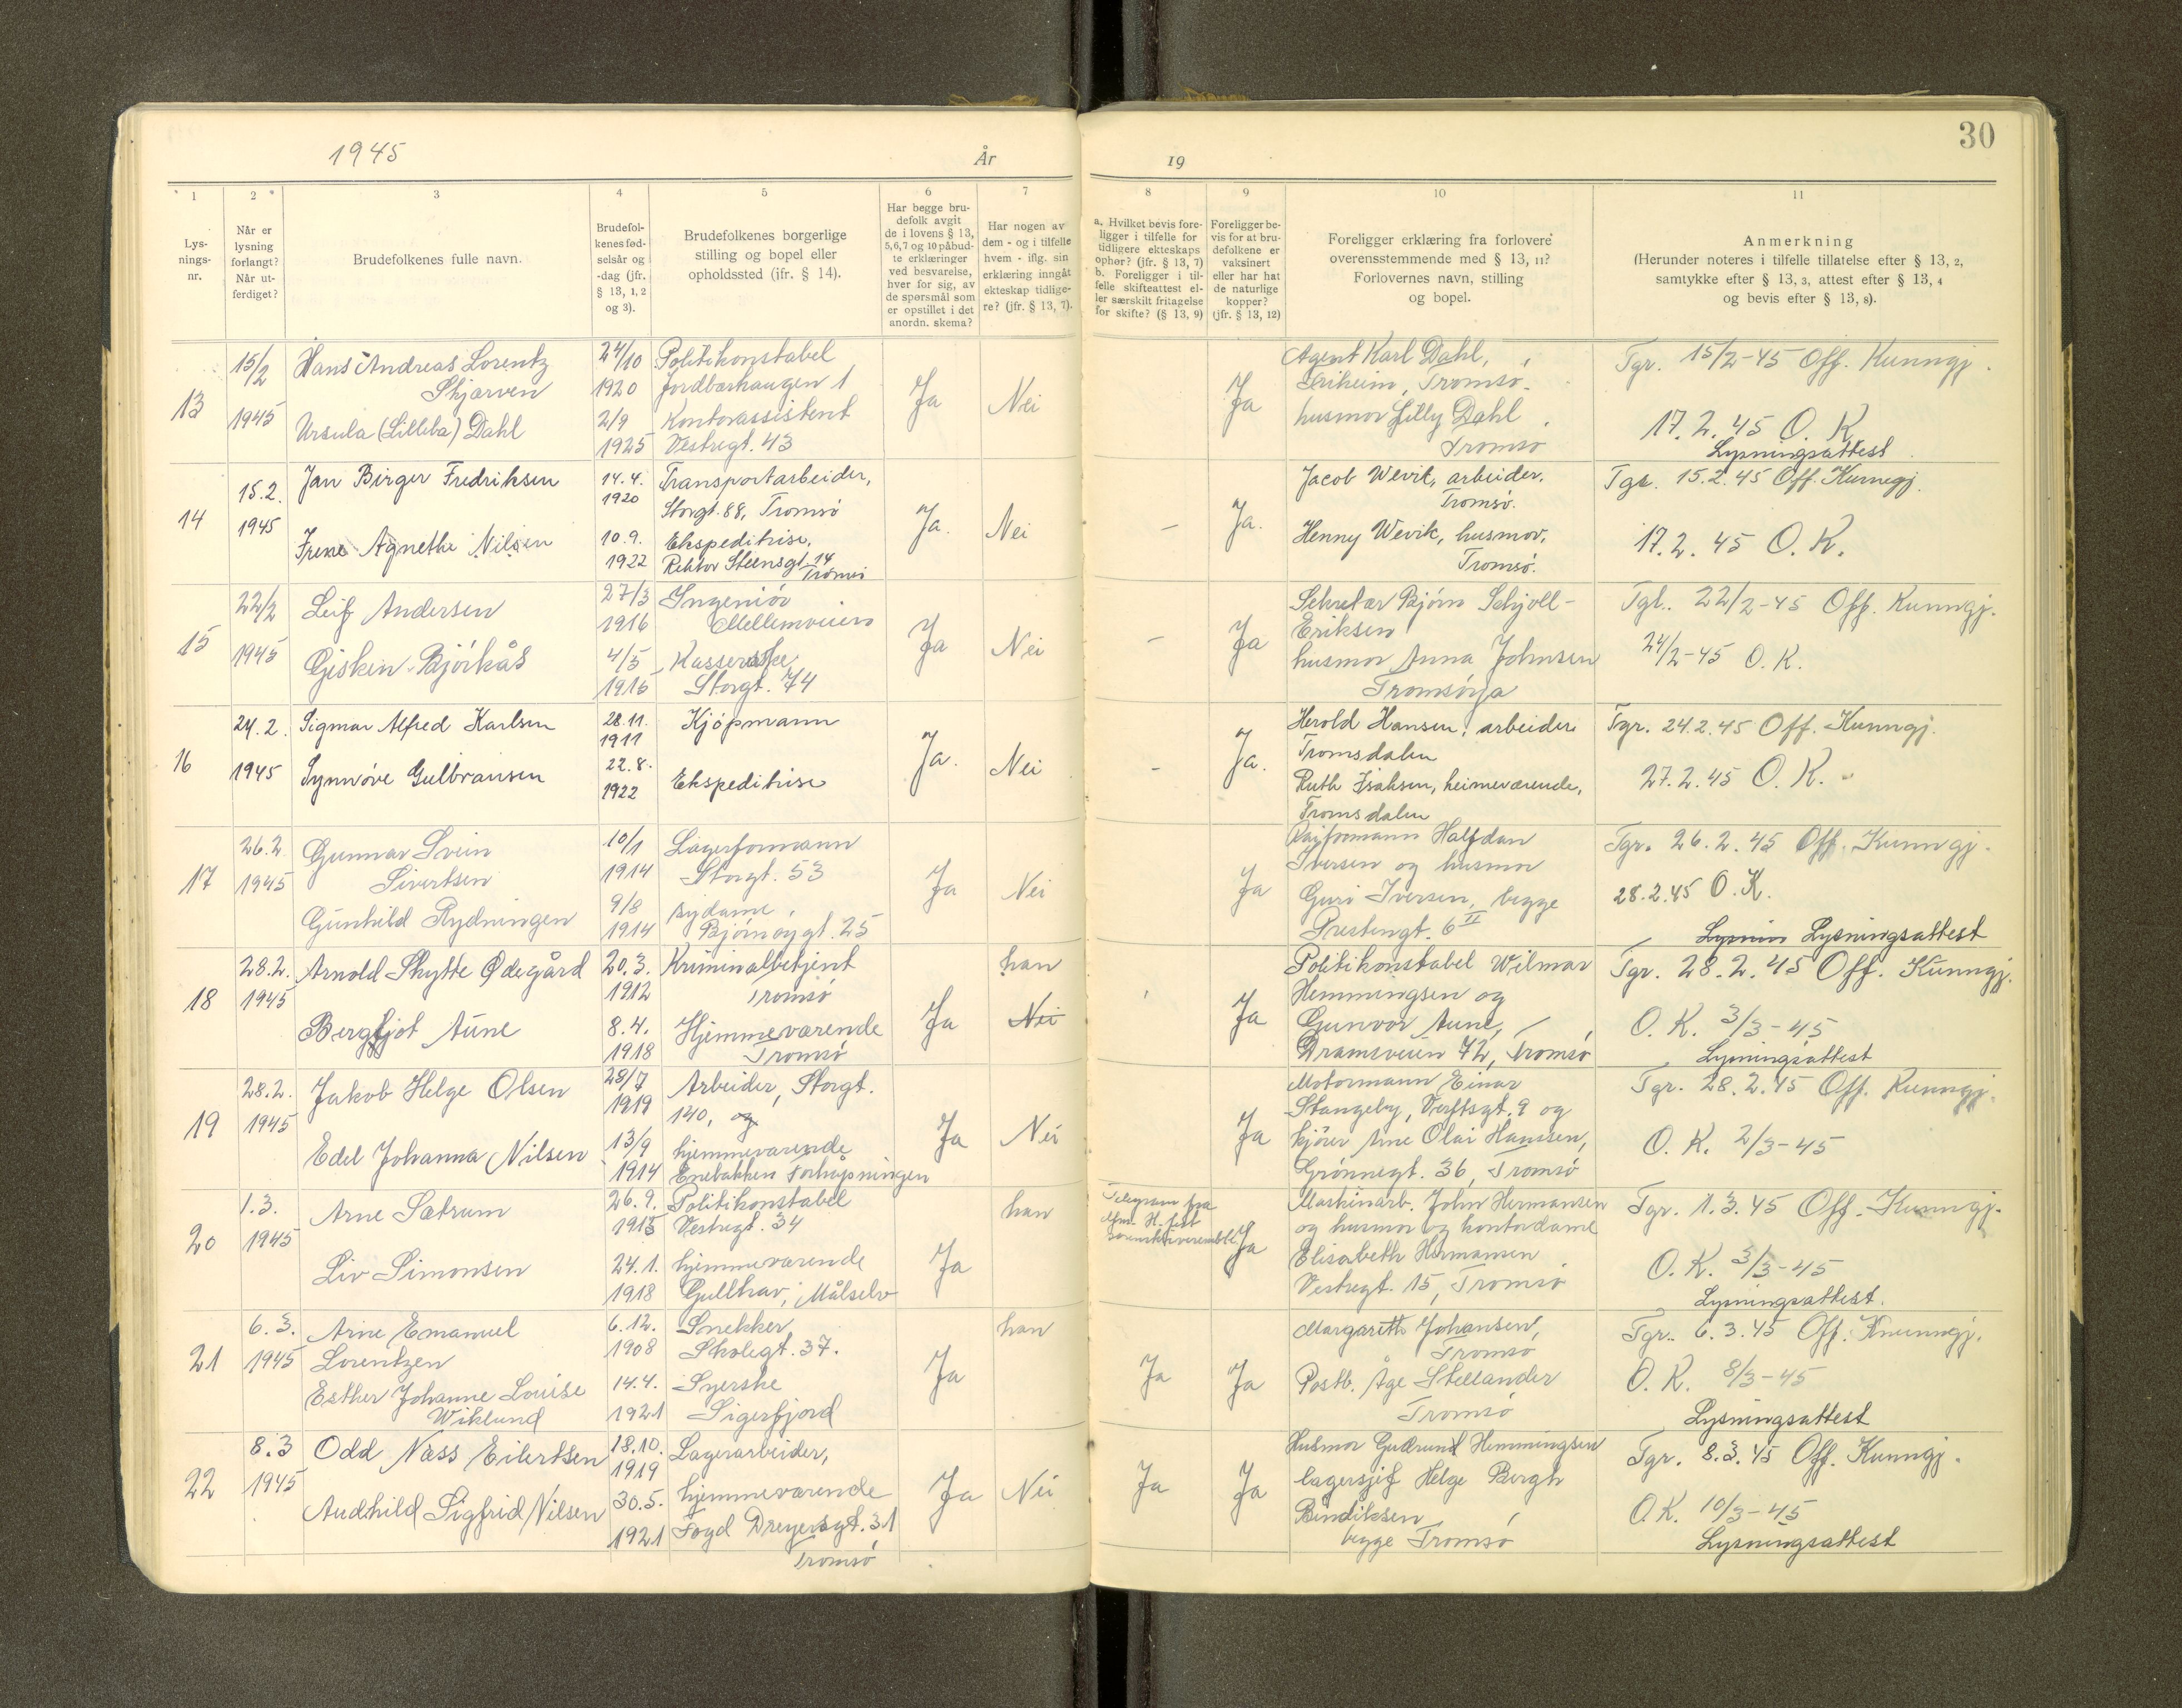 1945
År
19
30
1
2
3
4
5
6
7
8
9
10
11
Lys-
nings-
nr.
Når er
lysning
forlangt?
Når ut-
ferdiget?
Brudefolkenes fulle navn.
Brudefol-
kenes fød-
selsår og
-dag (jfr.
§ 13, 1, 2
og 3).
Brudefolkenes borgerlige
stilling og bopel eller
opholdssted (jfr. § 14).
Har begge bru-
defolk avgit
de i lovens § 13,
5,6,7 og 10 påbud-
te erklæringer
ved besvarelse,
hver for sig, av
de spørsmål som
er opstillet i det
anordn. skema?
Har nogen av
dem - og i tilfelle
hvem - iflg. sin
erklæring inngåt
ekteskap tidlige-
re? (jfr. § 13, 7).
a. Hvilket bevis fore-
ligger i tilfelle for
tidligere ekteskaps
ophør? (jfr. § 13, 7)
b. Foreligger i til-
felle skifteattest el-
ler særskilt fritagelse
for skifte? (§ 13, 9)
Foreligger be-
vis for at bru-
defolkene er
vaksinert
eller har hat
de naturlige
kopper?
(jfr. § 13, 12)
Foreligger erklæring fra forlovere
overensstemmende med § 13, 11?
Forlovernes navn, stilling
og bopel.
Anmerkning
(Herunder noteres i tilfelle tillatelse efter § 13, 2,
samtykke efter § 13, 3, attest efter § 13, 4
og bevis efter § 13, 8).
13
15/2
1945
Hans Andreas Lorentz
Skjærven
Ursula (Lilleba) Dahl
24/10
1920
2/9
1925
Politikonstabel
Jordbærhaugen 1
Kontorassistent
Vestregt. 43
Ja
Nei
Ja
Agent Karl Dahl,
Tromsø.
husmor Lilly Dahl
Tromsø
Tgr. 15/2-45 Off. Kunngj.
17.2.45 O.K.
Lysningsattest
14
15.2.
1945
Jan Birger Fredriksen
Irene Agnethe Nilsen
14.4.
1920
10.9.
1922
Transportarbeider,
Storgt. 88, Tromsø
Ekspeditrise,
Rektor Steensgt. 14
Tromsø
Ja.
Nei
-
Ja.
Jacob Wevik, arbeider.
Tromsø.
Henny Wevik, husmor,
Tromsø.
Tgr. 15.2.45 Off. Kunngj.
17.2.45 O.K.
15
22/2
1945
Leif Andersen
Gisken Bjørkås
27/3
1916
4/5
1915
Ingeniør
Mellemveien
Kasserske
Storgt. 74
Ja
Nei
-
Ja
Sekretær Bjørn Schjoll-
Eriksen
husmor Anna Johnsen
Tromsøya
Tgr. 22/2-45 Off. Kunngj.
24/2-45 O.K.
16
24.2.
1945
Sigmar Alfred Karlsen
Synnøve Gulbransen
28.11.
1911
22.8.
1922
Kjøpmann
Ekspeditrise
Ja.
Nei
-
Ja.
Herold Hansen, arbeider
Tromsdalen
Ruth Isaksen, heimeværende,
Tromsdalen
Tgr. 24.2.45 Off. Kunngj.
27.2.45 O.K.
17
26.2
1945
Gunnar Svein
Sivertsen
Gunhild Rydningen
10/1
1914
9/8
1914
Lagerformann
Storgt. 53
sydame,
Bjørnøygt. 25
Ja
Nei
Ja
Halfdan
Iversen og husmor
Guri Iversen, begge
Prestengt. 6 II
Tgr. 26.2.45 Off. Kunngj.
28.2.45 O.K.
Lysnin Lysningsattest
18
28.2.
1945
Arnold Skytte Ødegård
Bergljot Aune
20.3.
1912
8.4.
1918
Kriminalbetjent
Tromsø
Hjemmeværende
Tromsø
Ja
han
Nei
Ja
Politikonstabel Wilmar
Hemmingsen og
Gunvor Aune,
Dramsveien 72, Tromsø
Tgr. 28.2.45 Off. Kunngj.
O.K. 3/3-45
Lysningsattest
19
28.2.
1945
Jakob Helge Olsen
Edel Johanna Nilsen
28/7
1919
13/9
1914
Arbeider, Storgt.
140, og
hjemmeværende
Enebakken Forhøpningen
Ja
Nei
Ja
Motormann Einar
Stangeby, Verftsgt. 9 og
kjører Arne Olai Hanssen,
Grønnegt. 36, Tromsø
Tgr. 28.2.45 Off. Kunngj.
O.K. 2/3-45
20
1.3.
1945
Arne Sætrum
Liv Simonsen
26.9.
1915
24.1.
1918
Politikonstabel
Vestregt. 34
hjemmeværende
Gullhav, Målselv
Ja
han
Telegram fra
Ja
Maskinarb. John Hermansen
og husmor og kontordame
Elisabeth Hermansen
Vestregt. 15, Tromsø
Tgr. 1.3.45 Off. Kunngj.
O.K. 3/3-45
Lysningsattest.
21
6.3.
1945
Arne Emanuel
Lorentzen
Esther Johanne Louise
Wiklund
6.12.
1908
14.4.
1921
Snekker
Skolegt. 37.
Syerske
Sigerfjord
Ja
han
Ja
Ja
Margareth Johansen,
Tromsø
Postb. Åge Stellander
Tromsø
Tgr. 6.3.45 Off. Knunngj.
O.K. 8/3-45
Lysningsattest
22
8.3
1945
Odd Næss Eilertsen
Audhild Sigfrid Nilsen
18.10.
1919
30.5.
1921
Lagerarbeider,
hjemmeværende
Fogd Dreyersgt. 31
Tromsø
Ja
Nei
Ja
Ja
Husmor Gudrund Hemmingsen
lagersjef Helge Bergh
Bendiksen
begge Tromsø
Tgr. 8.3.45 Off. Kunngj.
O.K. 10/3-45
Lysningsattest